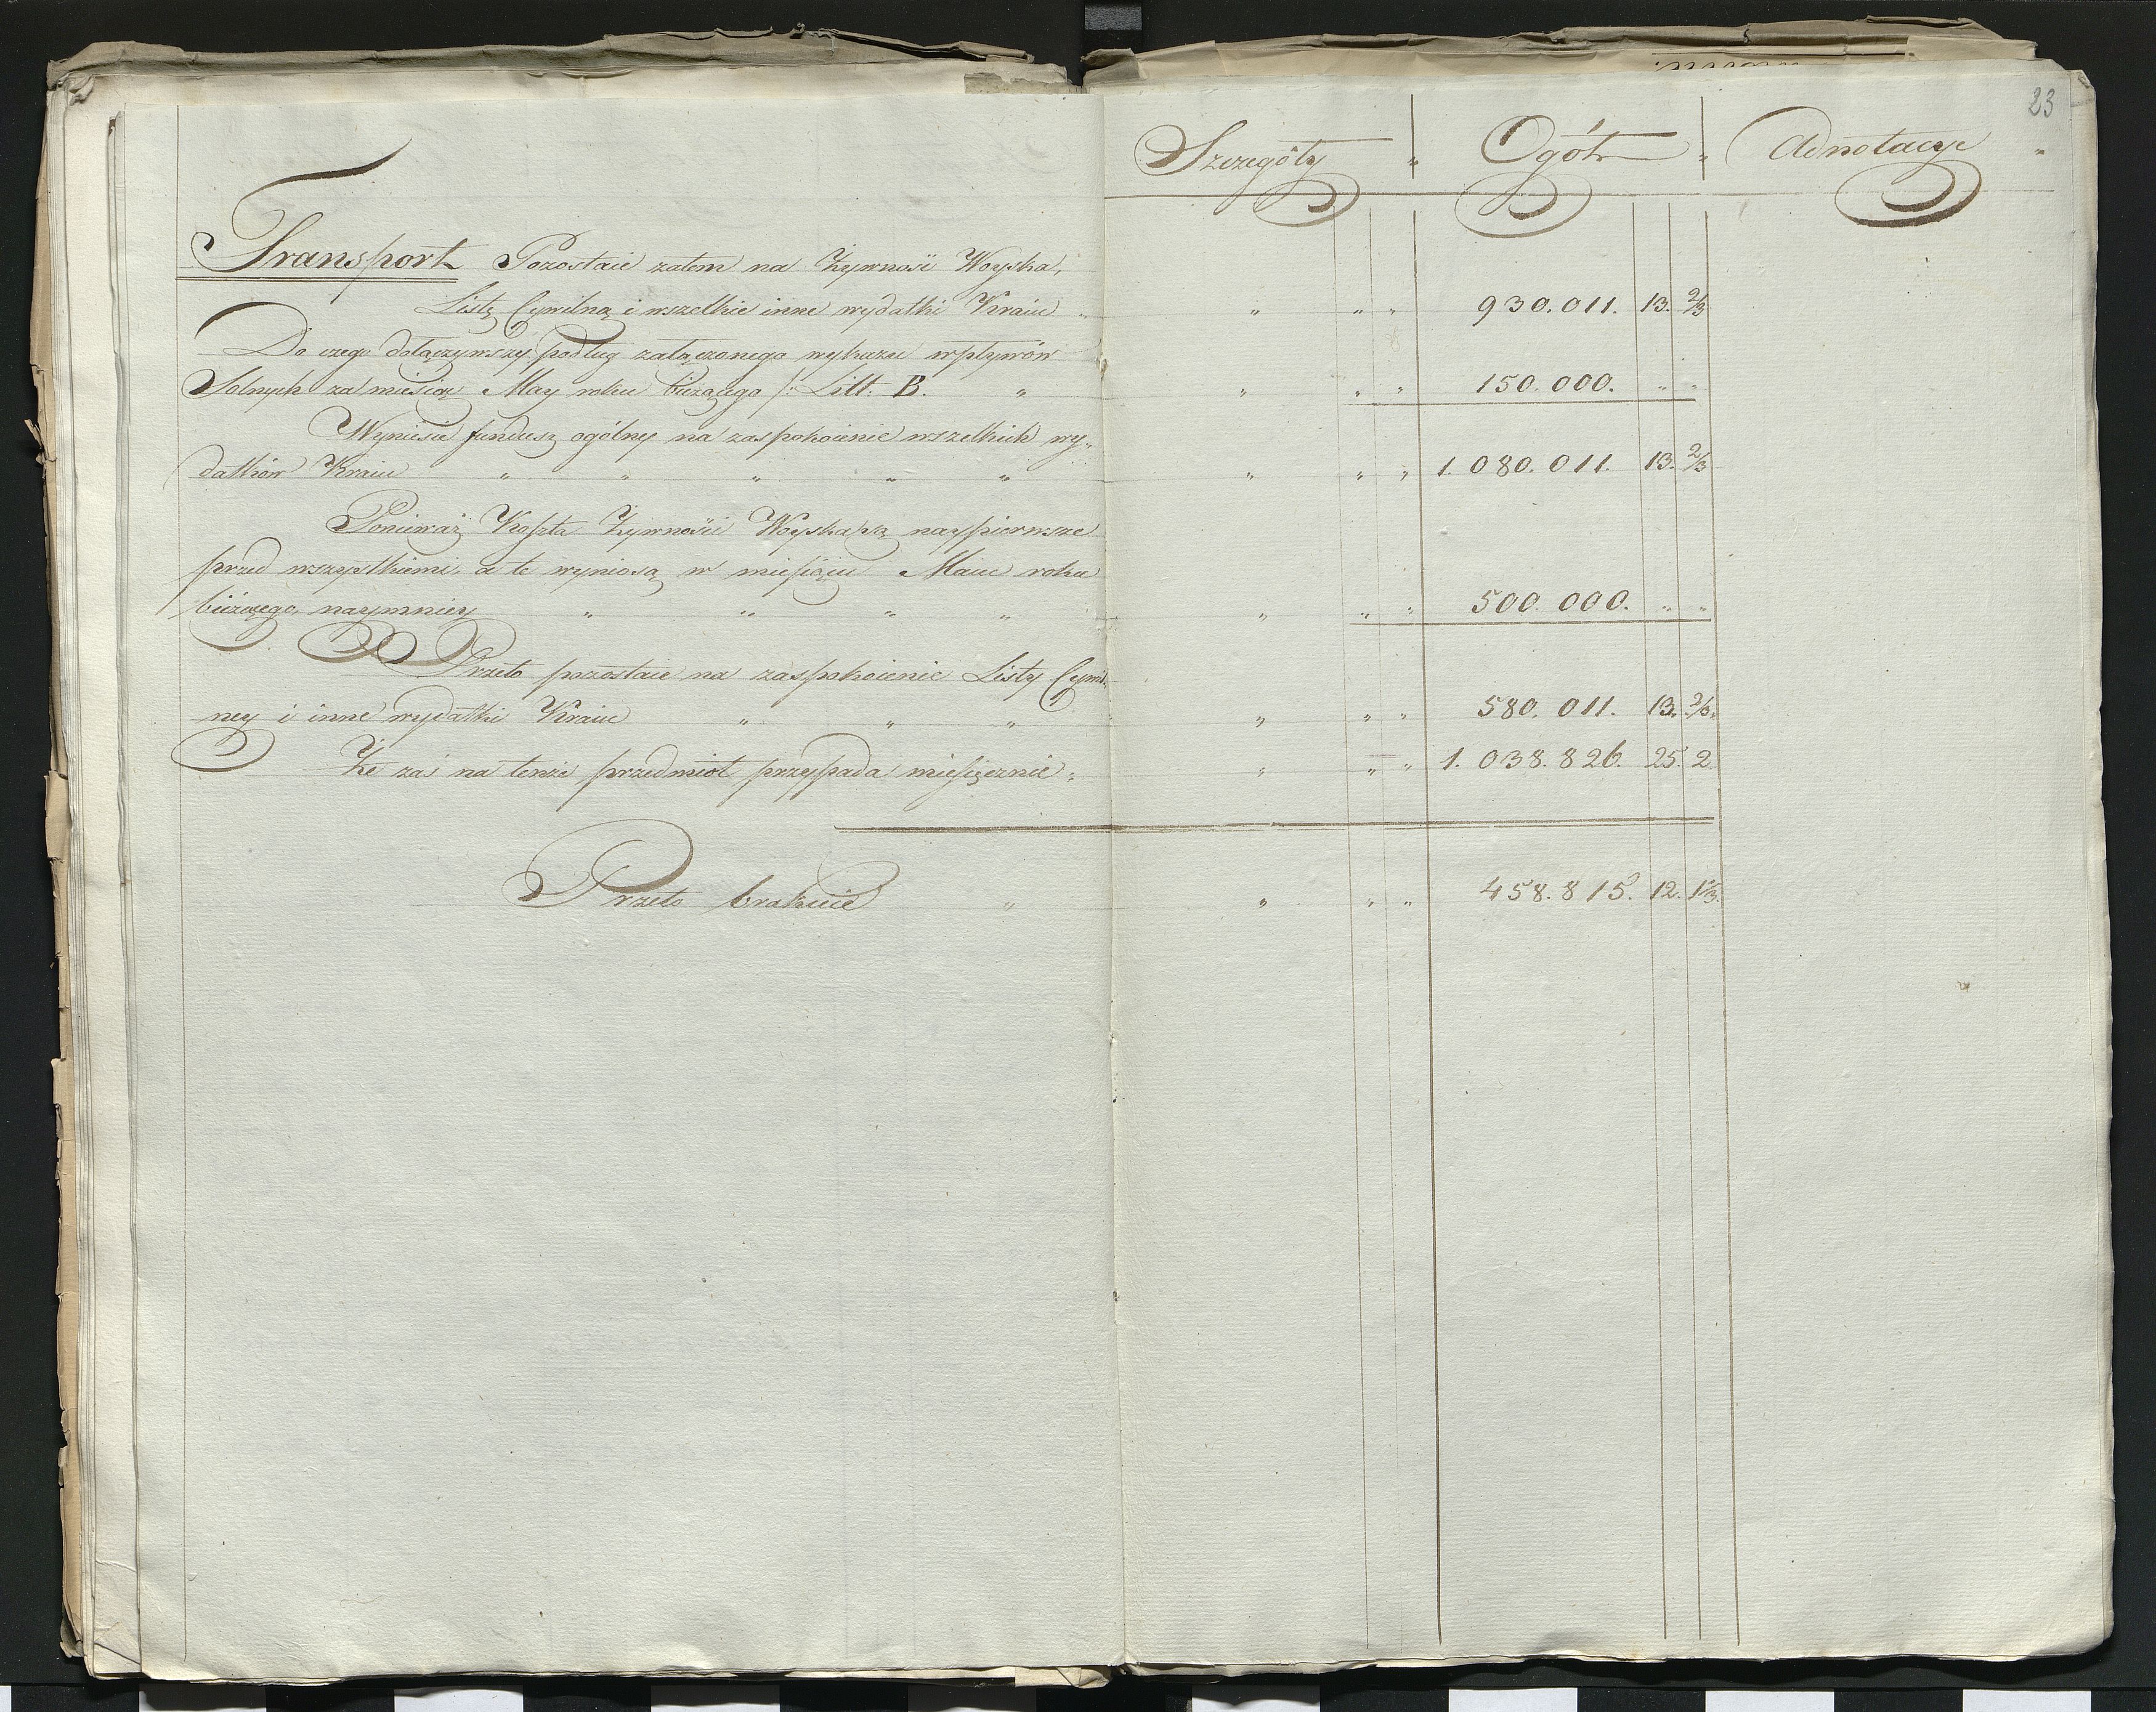 23
Szczegóły " Ogół " Adnotacye "
Transport Pozostaie zatem na Żywność Woyska,
Listę Cywilną i wszelkie inne wydatki Kraiu " " " " 930.011. 13. 2/3
Do czego dołączywszy podług załączonego wykazu wpływów
Solnych za miesiąc May roku bieżącego /: Litt. B. " " " " 150.000. " "
Wyniesie fundusz ogólny na zaspokoienie wszelkich wy„
datków Kraiu " " " " " " " " 1.080.011. 13. 2/3
Ponieważ Koszta Żywności Woyska są naypierwsze
przed wszystkiemi, a te wyniosą w miesiącu Maiu roku
bieżącego naymniey " " " " " " " 500.000. " "
Przeto pozostaie na zaspokoienie Listy Cywil„
ney i inne wydatki Kraiu " " " " " " 580.011. 13. 2/3.
Że zaś na tenże przedmiot przypada miesięcznie " " " " 1.038.826. 25. 2.
Przeto brakuie " " " " 458.815. 12. 1 1/3.